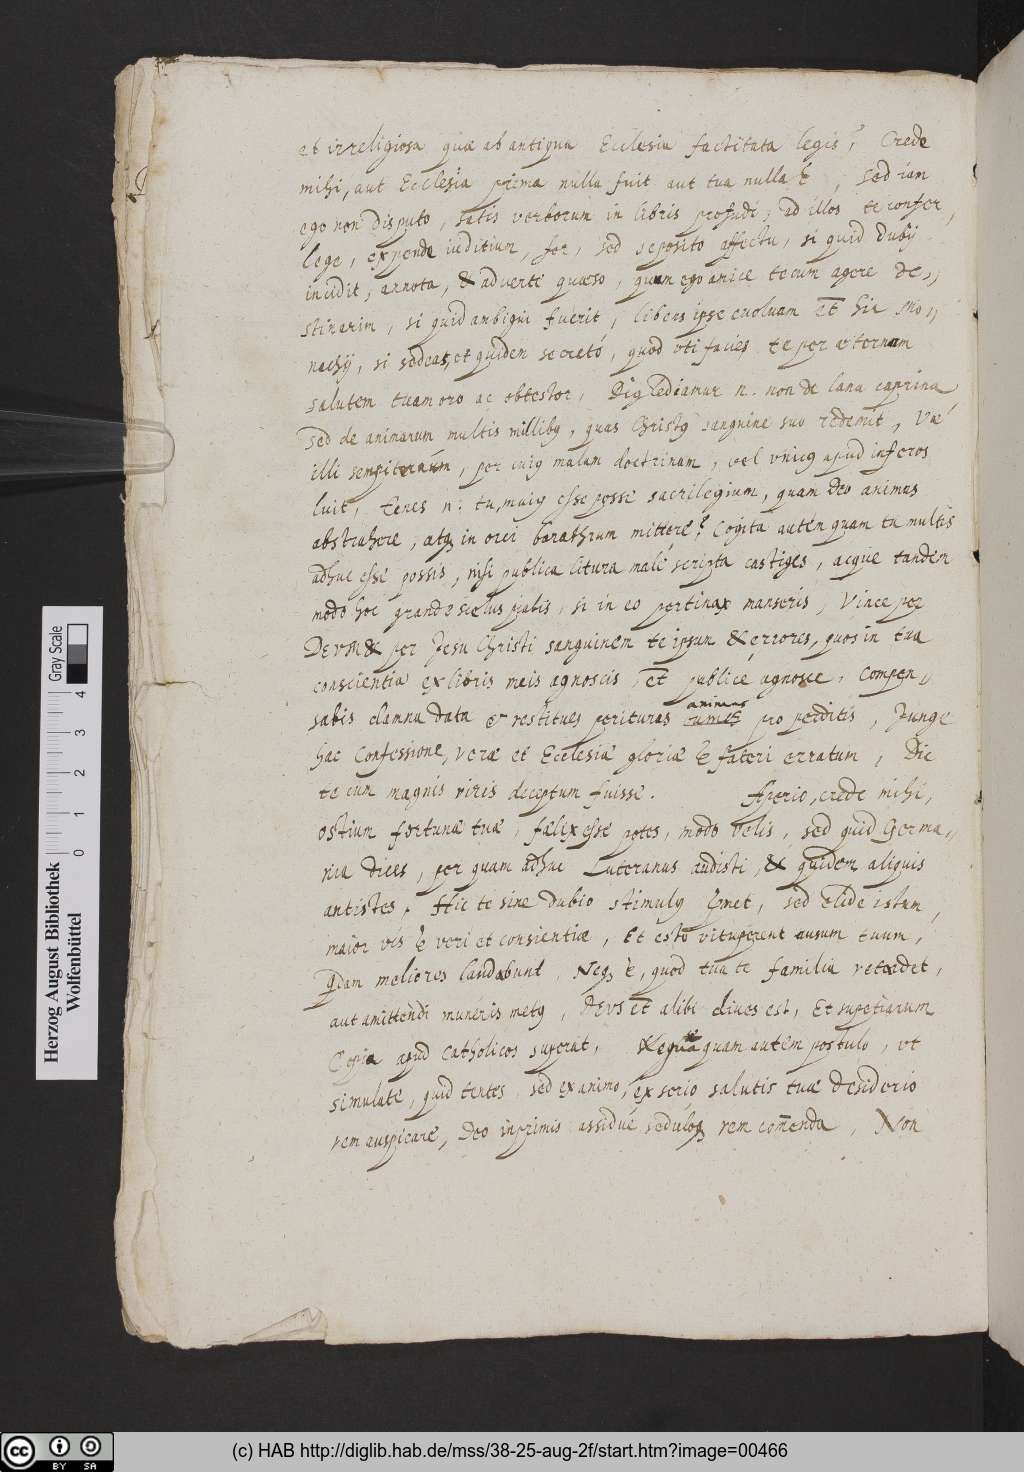 et irreligiosa quæ ab antiqua Ecclesia factitata legis? Crede
mihi, aut Ecclesia prima nulla fuit aut tua nulla ē, sed iam
ego non disputo, satis verborum in libris profudi; ad illos te confer,
lege, expende iuditium, fer, sed seposito affectu, si quid dubij
incidit, annota, & adverte quæso, quam ego amice tecum agere de,,
stinarim, si quid ambigui fuerit, libens ipse evoluam et hic Mo,,
nachij, si sedeas, et quidem secretó, quod vti facies te per æternam
salutem tuam oro ac obtestor, Digladiamur n. non de lana caprina
sed de animarum multis millibq, quas Christq sanguine suo redemit, Væ
illi sempiternúm, per cuiq malam doctrinam, vel vnicq apud inferos
luit, tenes n: tu, maiq esse posse sacrilegium, quam Deo animas
abstrahere, atq in orci barathrum mittere? Cogita autem quam tu multis
adhuc esse possis, nisi publica litura malé scripta castiges, acque tandem
modo hoc grande scelus piabis, si in eo pertinax manseris, Vince per
DEVM & per Jesu Christi sanguinem te ipsum & errores, quos in tua
conscientia ex libris meis agnoscis, et publicé agnosce, Compen,,
sabis damna data & restitues perituras animas pro perditis, Junge
hac Confessione, veræ et Ecclesiæ gloriæ ē fateri erratum, Dic
te cum magnis viris deceptum fuisse. Aperio, crede mihi,
ostium fortunæ tuæ, fælix esse potes, modo velis, sed quid Germa,,
nia dices, per quam adhuc Luteranus audisti, & quidem aliquis
antistes, Hic te sine dubio stimulq premet, sed elide istum,
maior vis ē veri et consientiæ, Et esto vituperent ausum tuum,
Qdam meliores laudabunt, Neq ē, quod tua te familia retardet,
aut amittendi muneris metq, DEVS et alibi diues est, Et supetiarum
Copia apud Catholicos superat, Nequaquam autem postulo, vt
simulate, quid tentes, sed ex animo, ex serio salutis tuæ desiderio
rem auspicare, Deo inprimis assidué seduloq rem comenda, Non
Herzog August Bibliothek
Wolfenbüttel
0 1 2 3 4
Gray Scale
(c) HAB http://diglib.hab.de/mss/38-25-aug-2f/start.htm?image=00466
cc BY SA